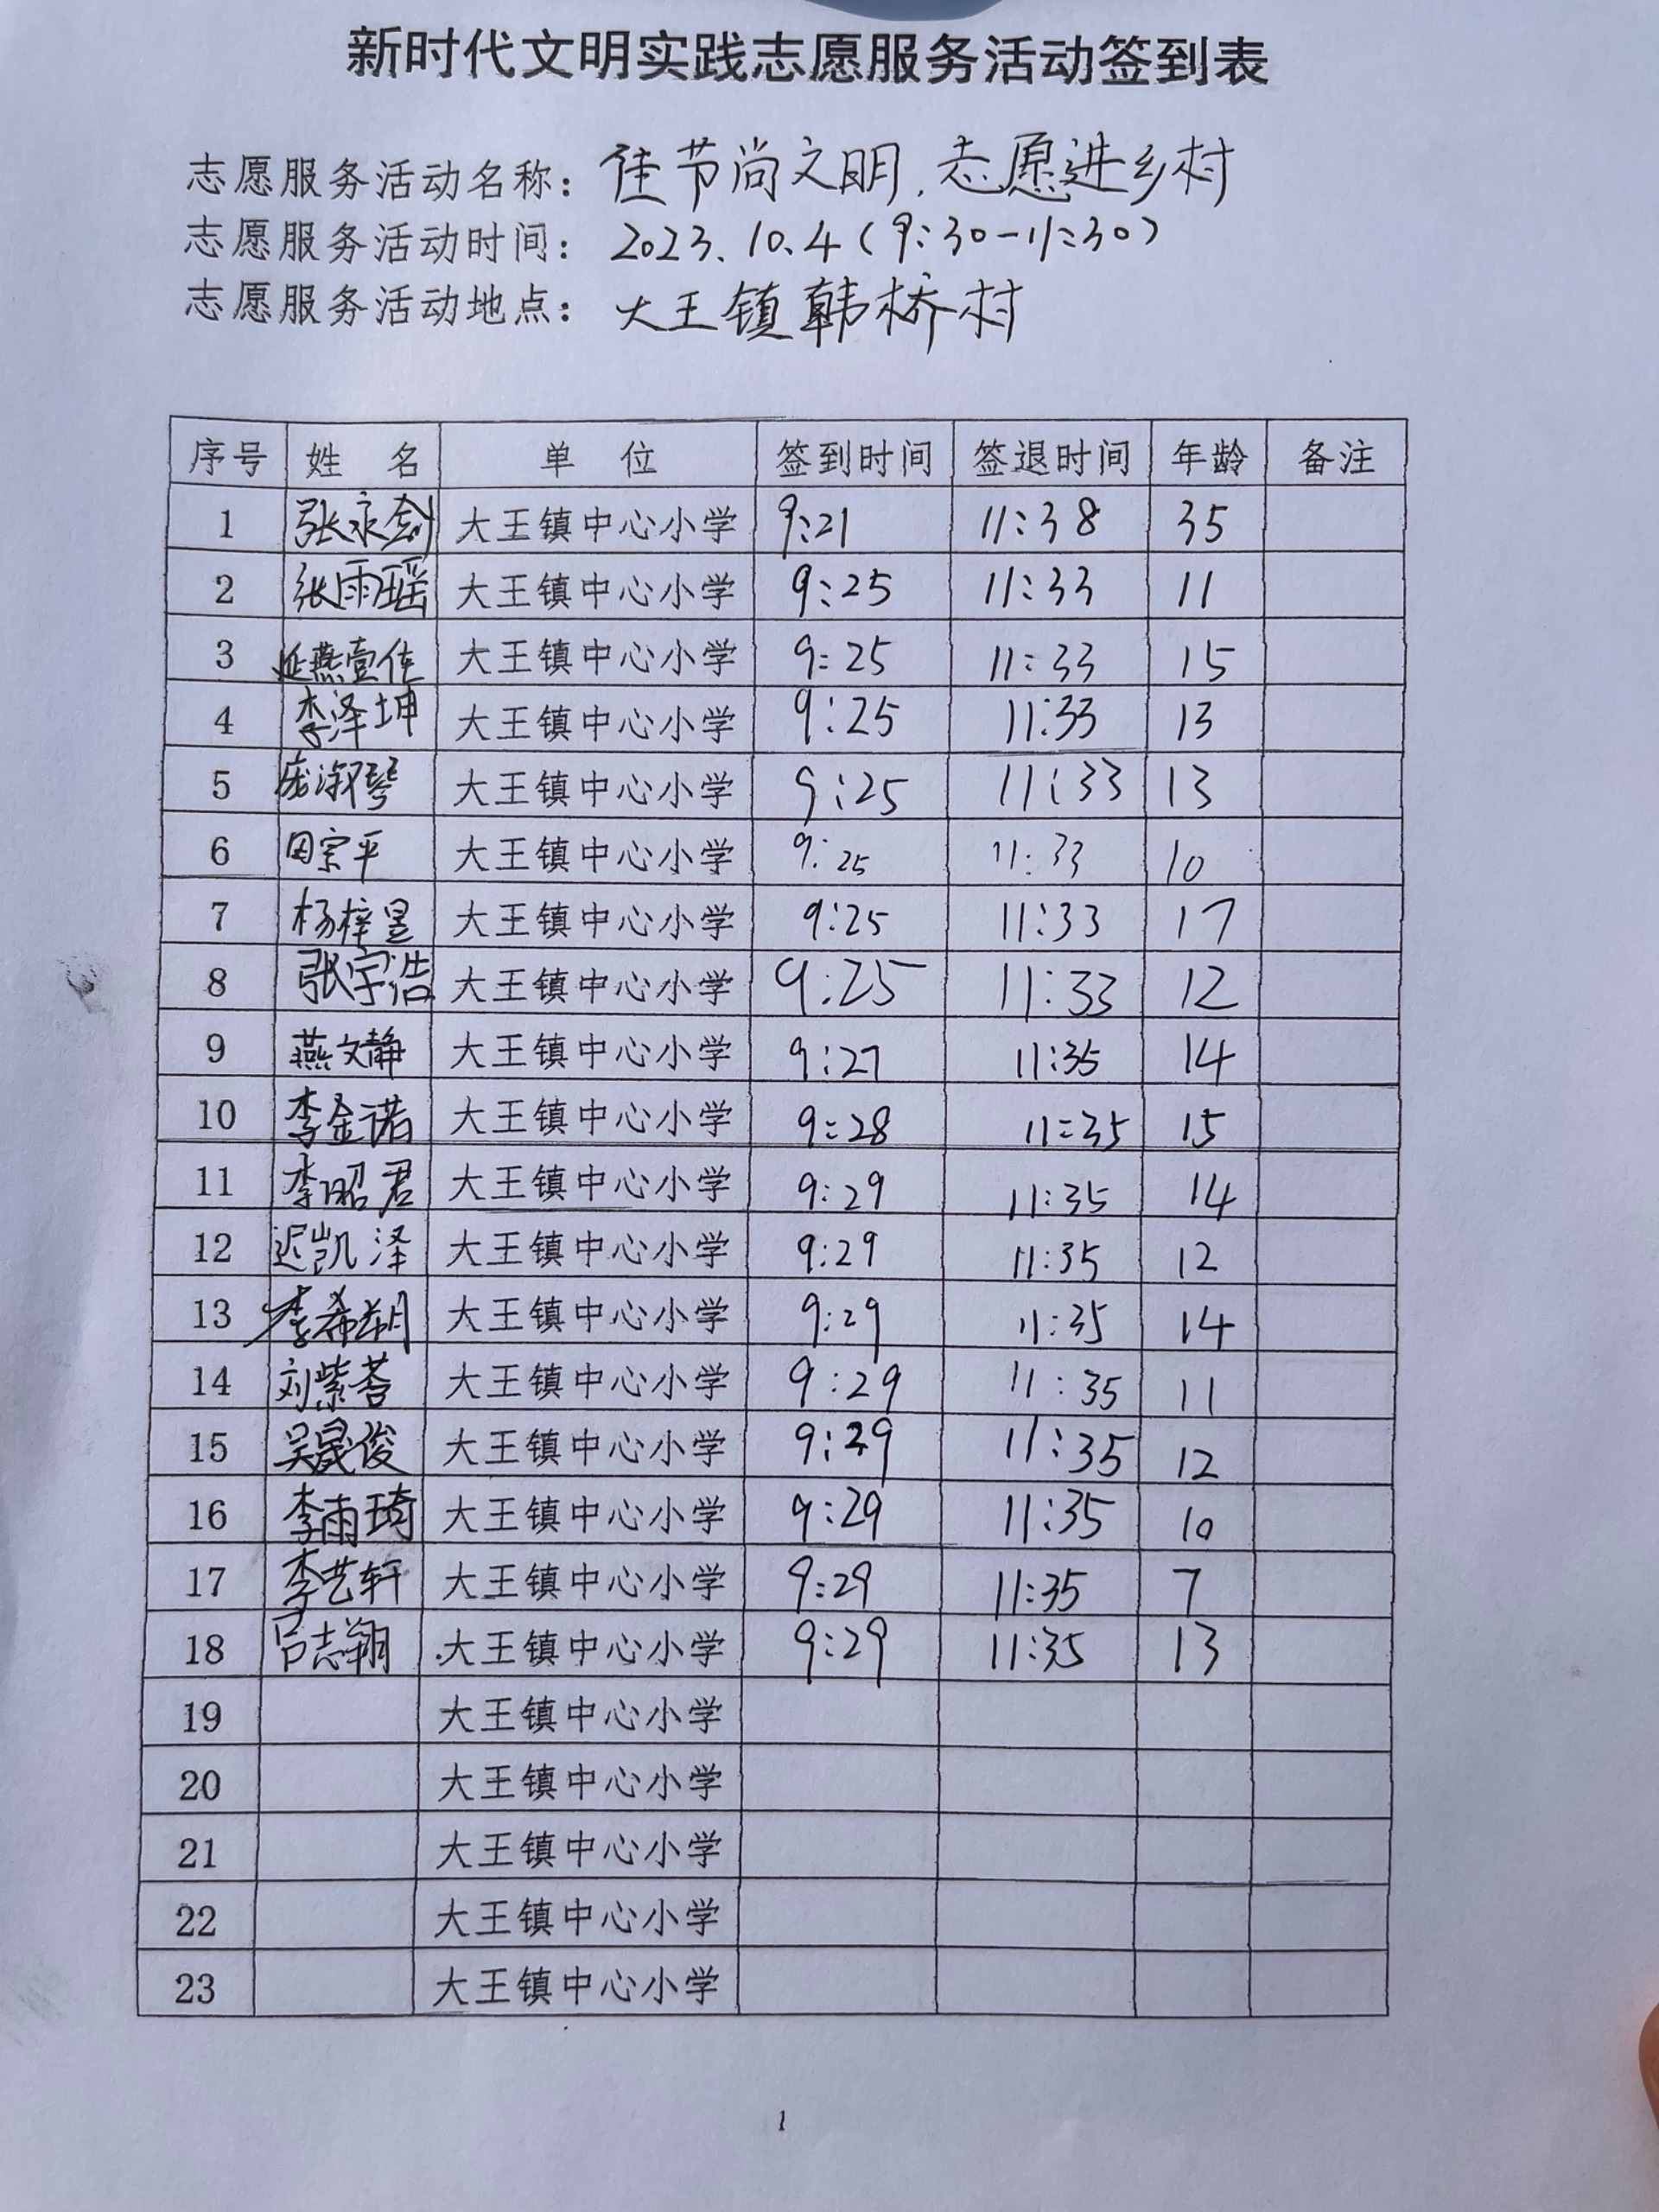 新时代文明实践志愿服务活动签到表
志愿服务活动名称：佳节尚文明，志愿进乡村
志愿服务活动时间：2023.10.4（9:30-11:30）
志愿服务活动地点：大王镇韩桥村
序号 姓 名 单 位 签到时间 签退时间 年龄 备注
1 张永剑 大王镇中心小学 9:21 11:38 35
2 张雨瑶 大王镇中心小学 9:25 11:33 11
3 延燕壹佳 大王镇中心小学 9:25 11:33 15
4 李泽坤 大王镇中心小学 9:25 11:33 13
5 庞淑琴 大王镇中心小学 9:25 11:33 13
6 田宗平 大王镇中心小学 9:25 11:33 10
7 杨梓昱 大王镇中心小学 9:25 11:33 17
8 张宇浩 大王镇中心小学 9:25 11:33 12
9 燕文静 大王镇中心小学 9:27 11:35 14
10 李金诺 大王镇中心小学 9:28 11:35 15
11 李昭君 大王镇中心小学 9:29 11:35 14
12 迟凯泽 大王镇中心小学 9:29 11:35 12
13 李希朔 大王镇中心小学 9:29 11:35 14
14 刘紫荟 大王镇中心小学 9:29 11:35 11
15 吴晟俊 大王镇中心小学 9:29 11:35 12
16 李雨琦 大王镇中心小学 9:29 11:35 10
17 李艺轩 大王镇中心小学 9:29 11:35 7
18 吕志翔 大王镇中心小学 9:29 11:35 13
19 大王镇中心小学
20 大王镇中心小学
21 大王镇中心小学
22 大王镇中心小学
23 大王镇中心小学
1